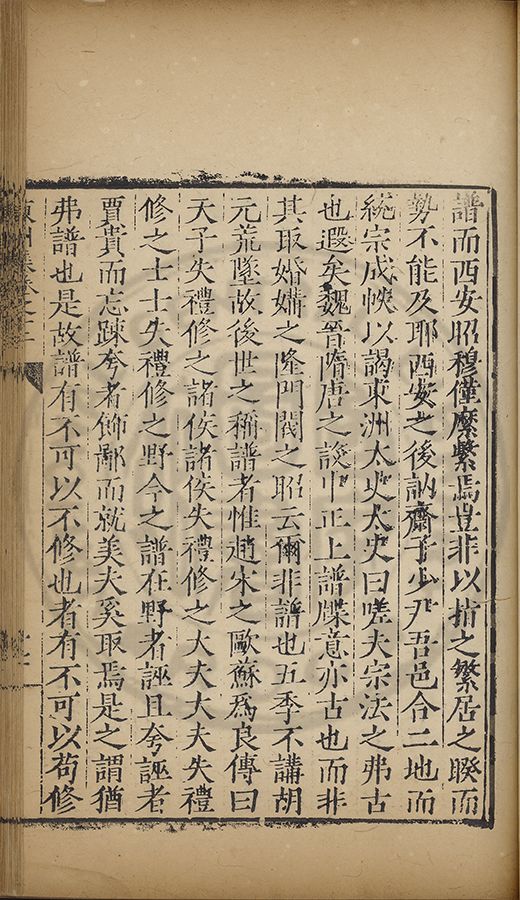 譜而西安昭穆僅縻繫焉豈非以指之繁居之睽而
勢不能及耶西安之後訥齋子少尹吾邑合二地而
統宗成帙以謁東洲太史太史曰嗟夫宗法之弗古
也遐矣魏晉隋唐之設中正上譜牒意亦古也而非
其取婚媾之隆門閥之昭云爾非譜也五季不講胡
元荒墜故後世之稱譜者惟趙宋之歐蘇爲良傳曰
天子失禮修之諸侯諸侯失禮修之大夫大夫失禮
修之士士失禮修之野今之譜在野者誣且夸誣者
賈貴而忘踈夸者飾鄙而就美夫奚取焉是之謂猶
弗譜也是故譜有不可以不修也者有不可以苟修